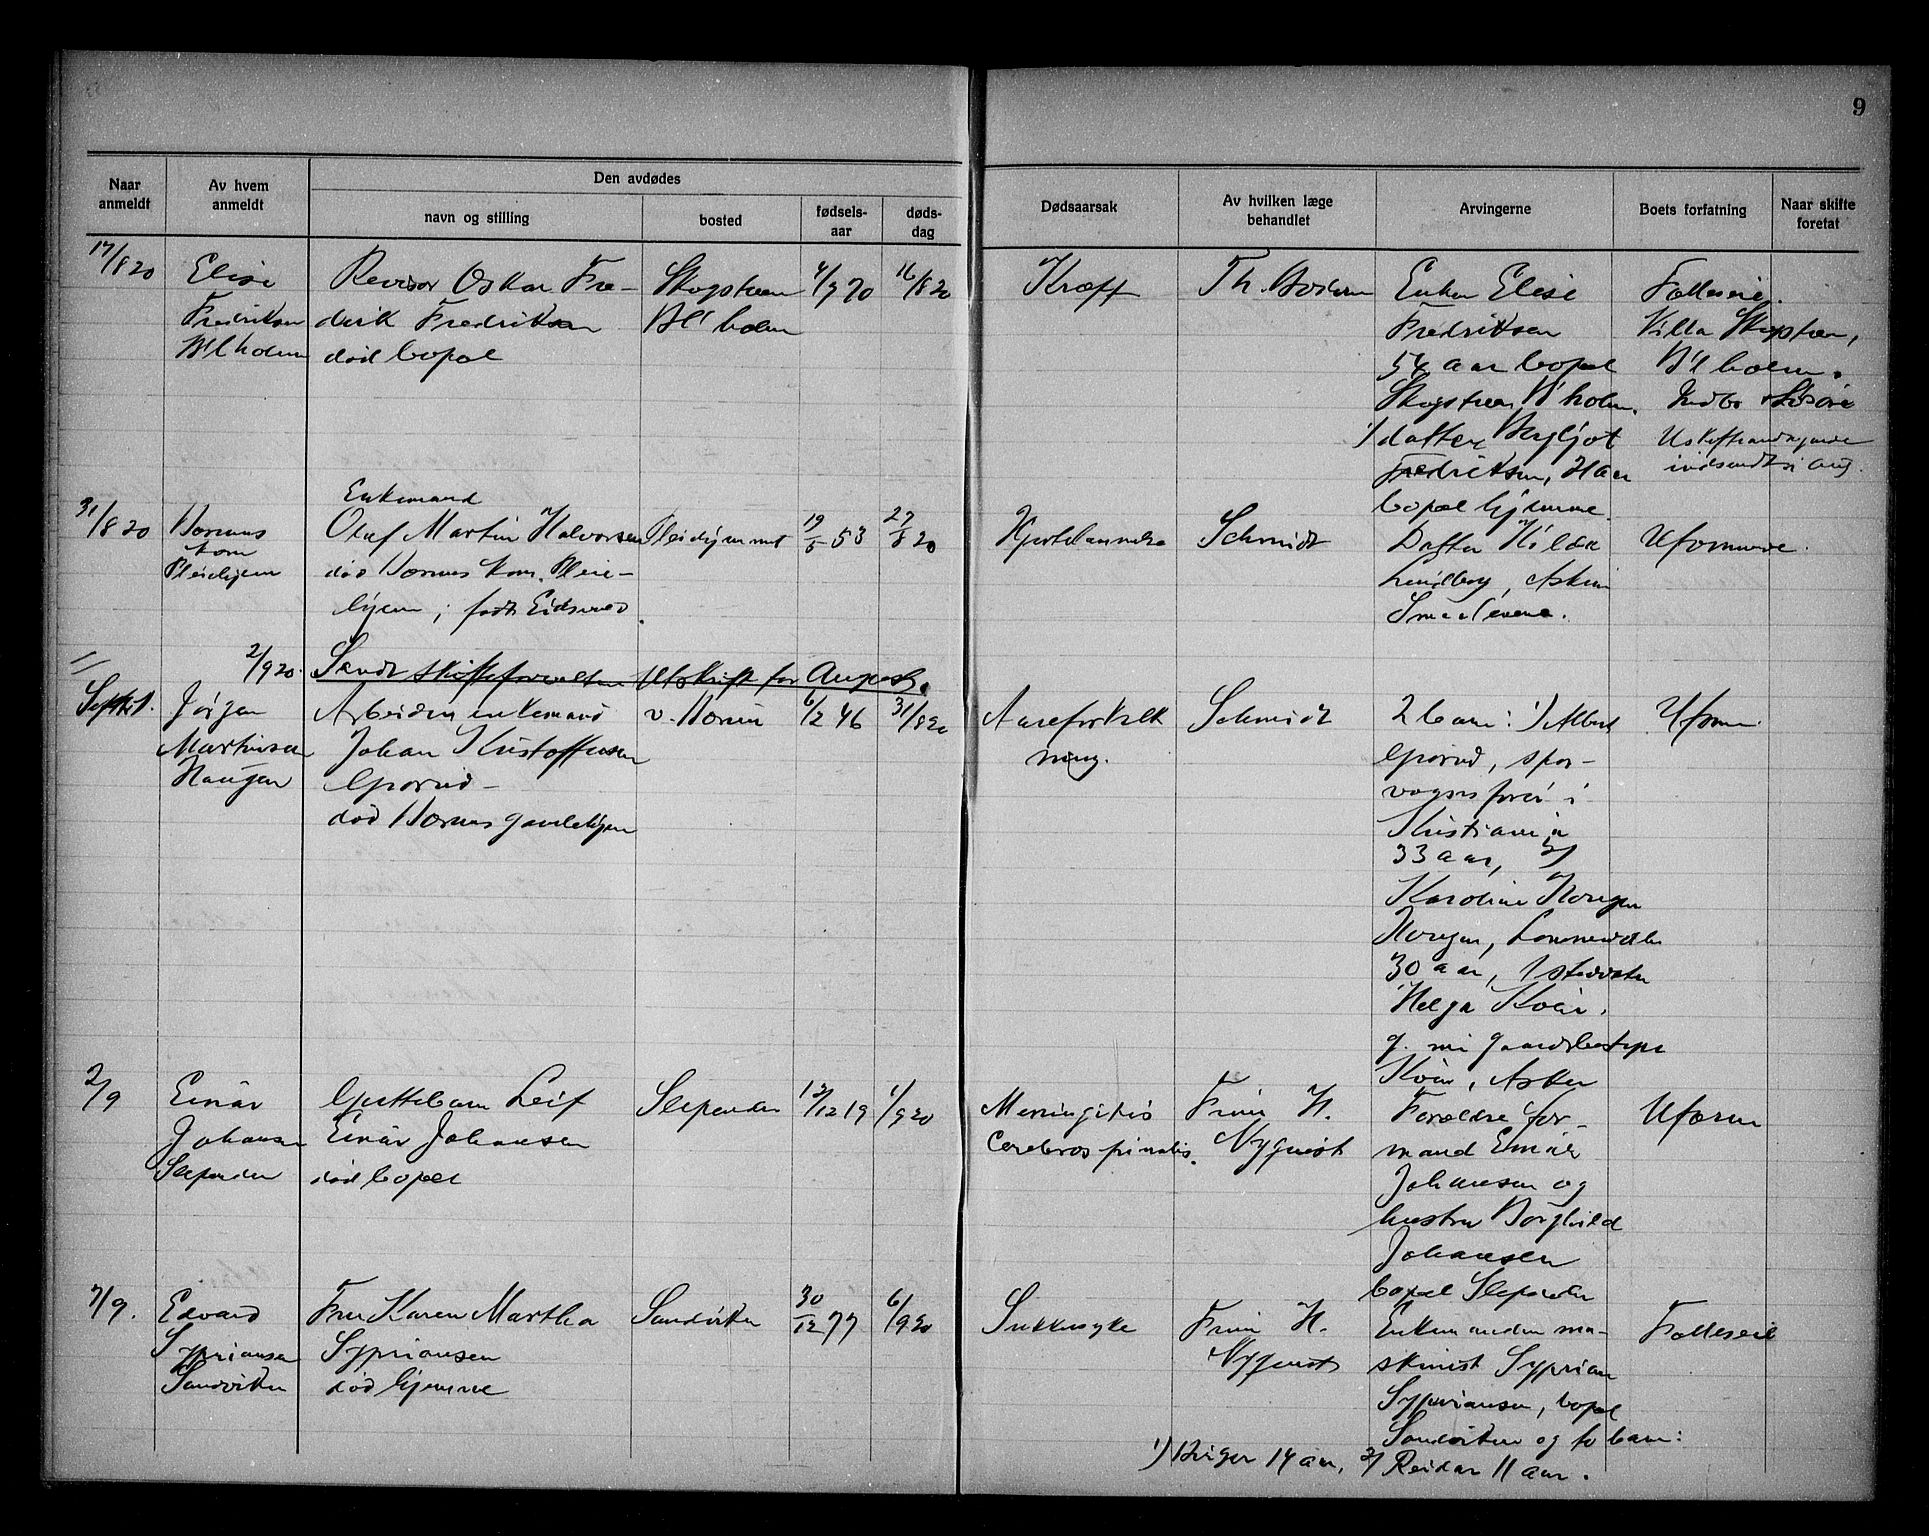 9
Naar anmeldt
Av hvem anmeldt
Den avdødes
navn og stilling
bosted
fødsels-aar
døds-dag
Dødsaarsak
Av hvilken læge behandlet
Arvingerne
Boets forfatning
Naar skifte foretat
17/8 20
Elise
Fredriksen
Bl holm
Revisor Oskar Fre-
drik Fredriksen
død bopæl
Skogstuen
Bl' holm
4/9 70
16/8 20
Kræft
Th.
Enken Elise
Fredriksen
54 aar bopæl
Skogstuen, B' holm.
1) datter Bergljot
Fredriksen, 14 aar
bopæl hjemme.
Fælleseie.
Villa Skogstuen,
Bl holm.
Indbo + løsøre
indsendt i aug.
31/8 20
Bærums
kom
Pleiehjem
Enkemand
Oluf Martin Halvorsen
død Bærums kom. Pleie-
hjem, født Eidsvold.
Pleiehjemmet
19/5 53
27/8 20
Hjertelammelse
Schmidt
Datter Hilda
Lindberg, Askim
Smaalenene.
Uformuende.
2/9 20. Sendt skifteforvalteren utskrift for August.
1/
Septbr.
Jørgen
Martinsen
Haugen
Arbeider enkemand
Johan Kristoffersen
Gjorud
død Bærums gamlehjem
v. Bærum
6/2 46
31/8 20
Aareforkalk
ning.
Schmidt
2 barn: 1) Albert
Gjorud, spor-
vognsfører i
Kristiania
33 aar, 2)
Karoline Haugen
Haugen, Lommedalen
30 aar, 1 steddatter
Helga Kvær.
g. m. gaardbestyrer
Kvær, Asker
Uformuende
2/9
Einar
Johansen
Slependen
Guttebarn Leif
Einar Johansen
død bopæl
Slependen
12/12 19
1/9 20
Meningitis
Cerebrospinalis.
Finn H.
Nyquist
Forældre for-
mand Einar
Johansen og
hustru Borghild
Johansen
bopæl Slependen
Uformuende
7/9.
Edvard
Sypriansen
Sandviken
Fru Karen Martha
Sypriansen
død hjemme
Sandviken
30/12 77
6/9 20
Sukkersyke
Finn H.
Nyquist
Enkemanden ma-
skinist Syprian
Sypriansen, bopæl
Sandviken og to barn:
1) Birger 14 aar, 2) Reidar 11 aar.
Fælleseie